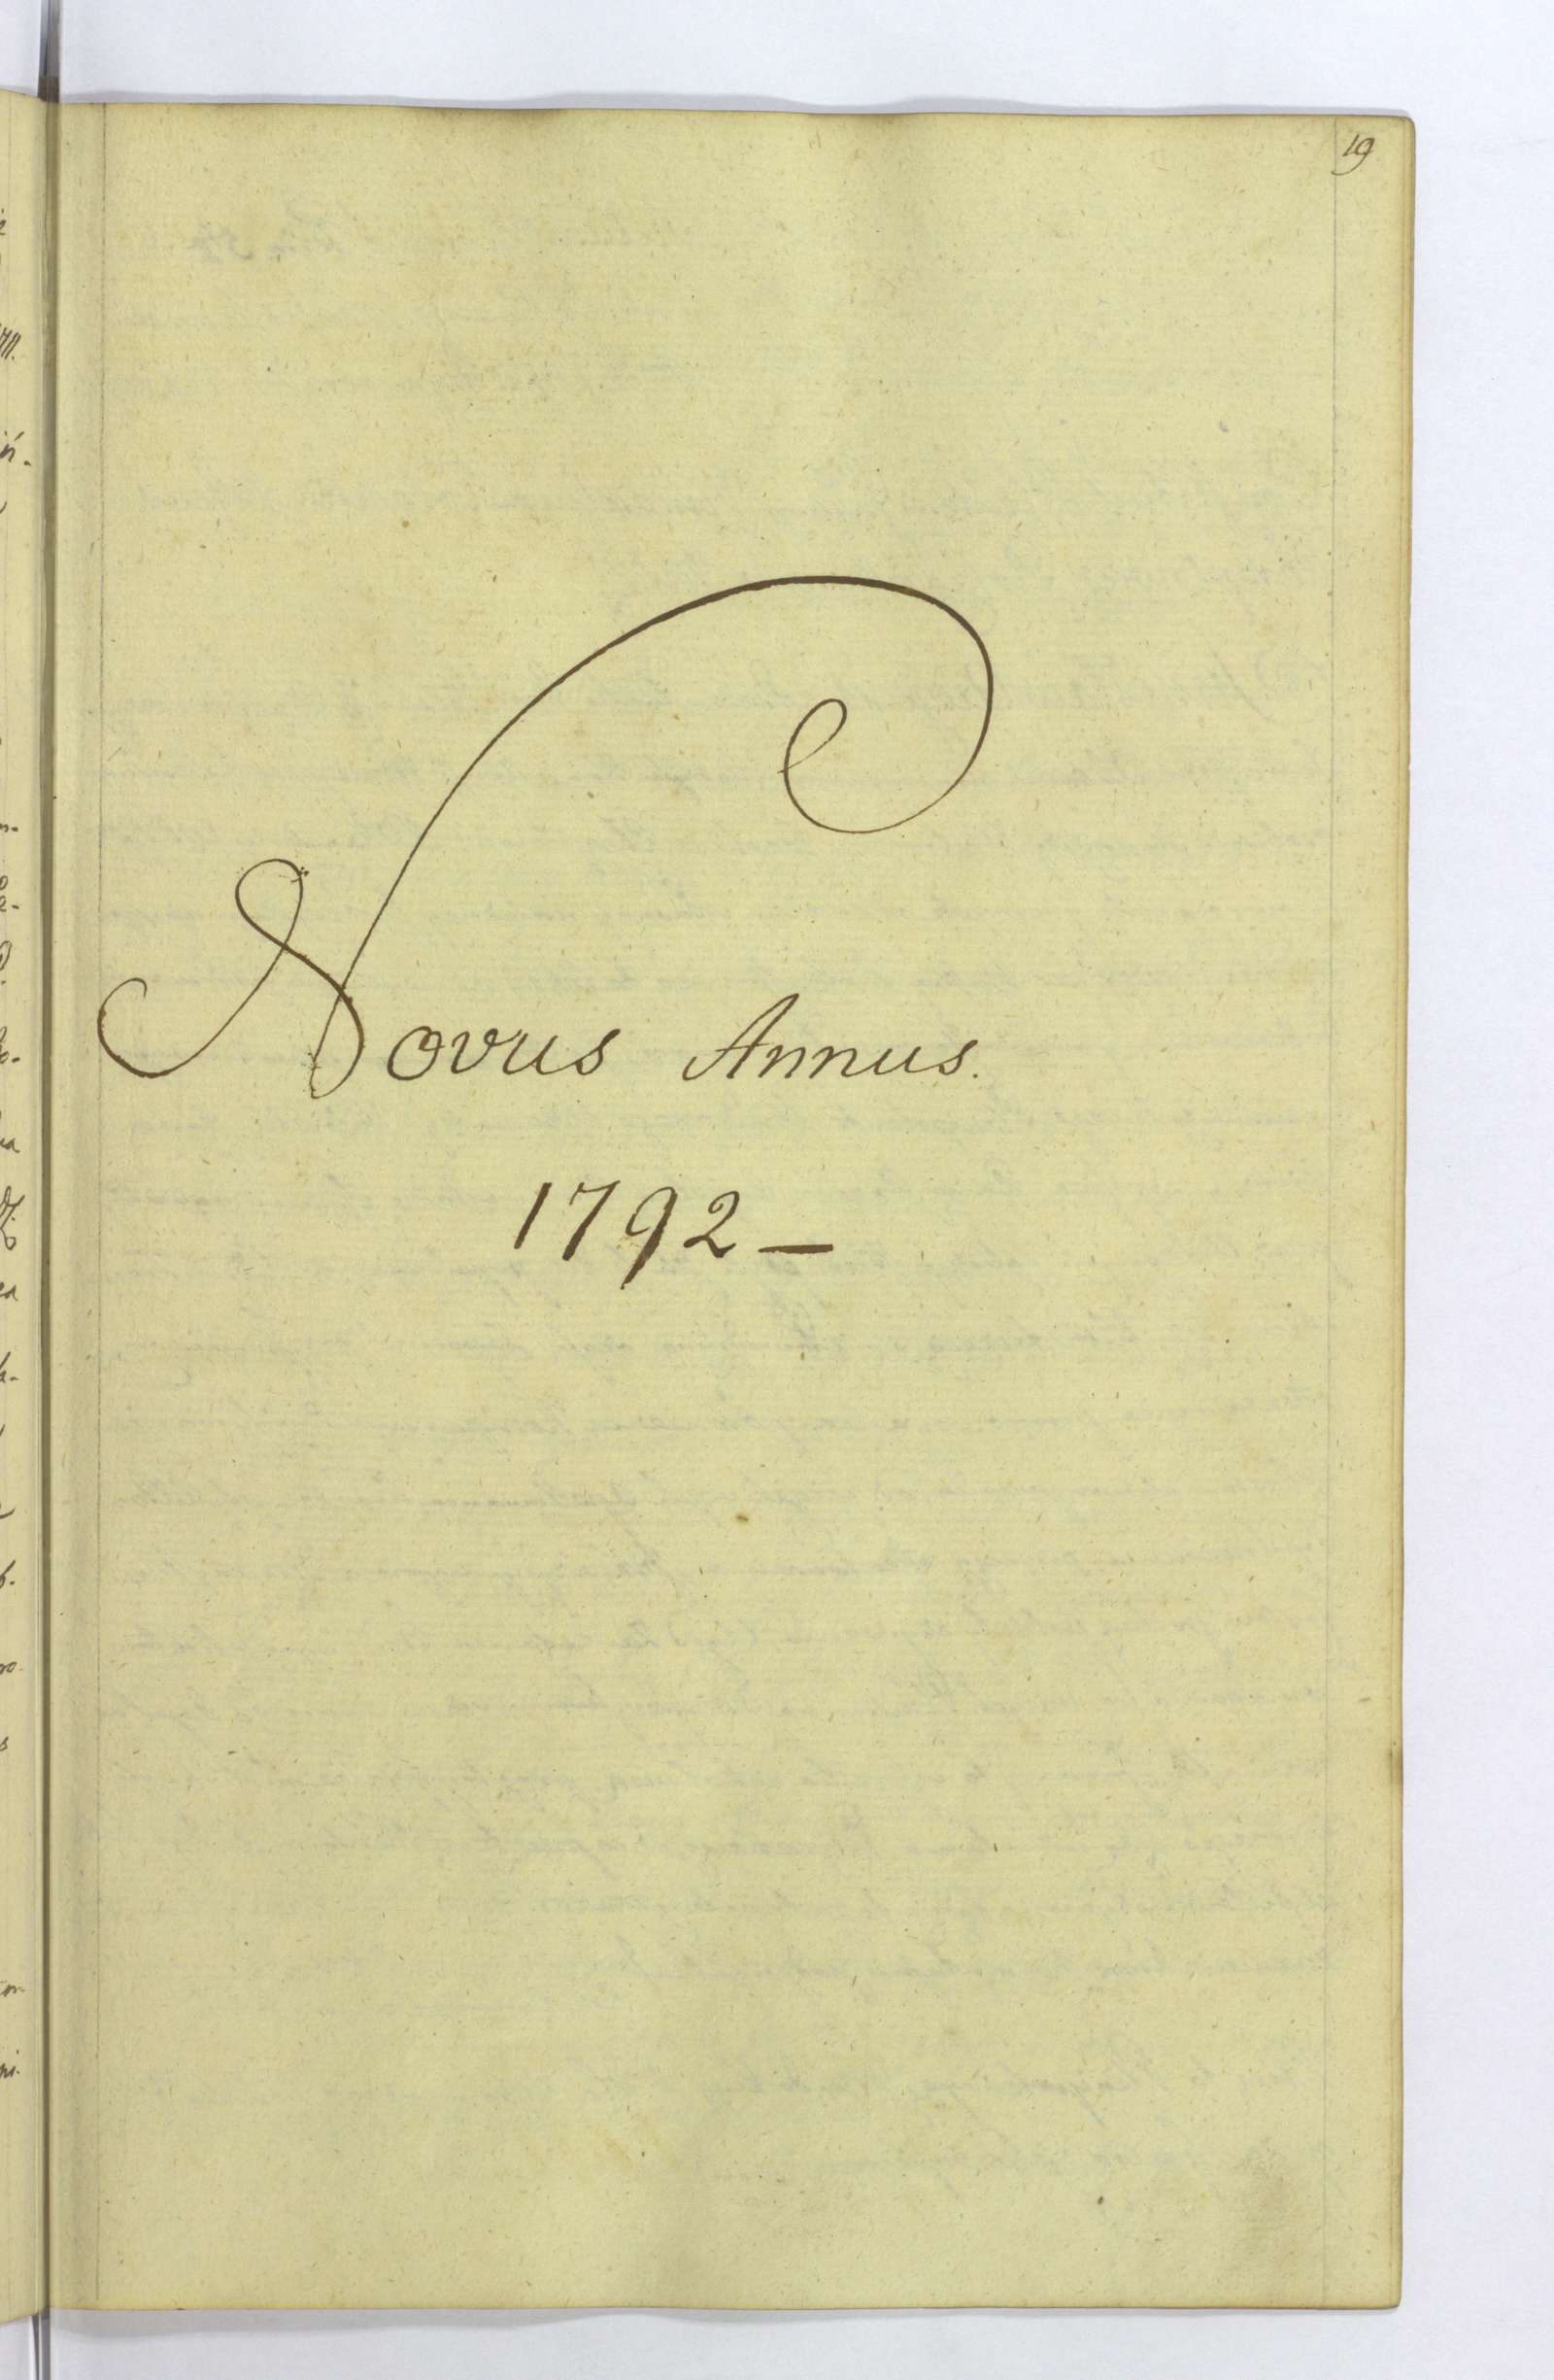 19
Novus Annus.
1792 —